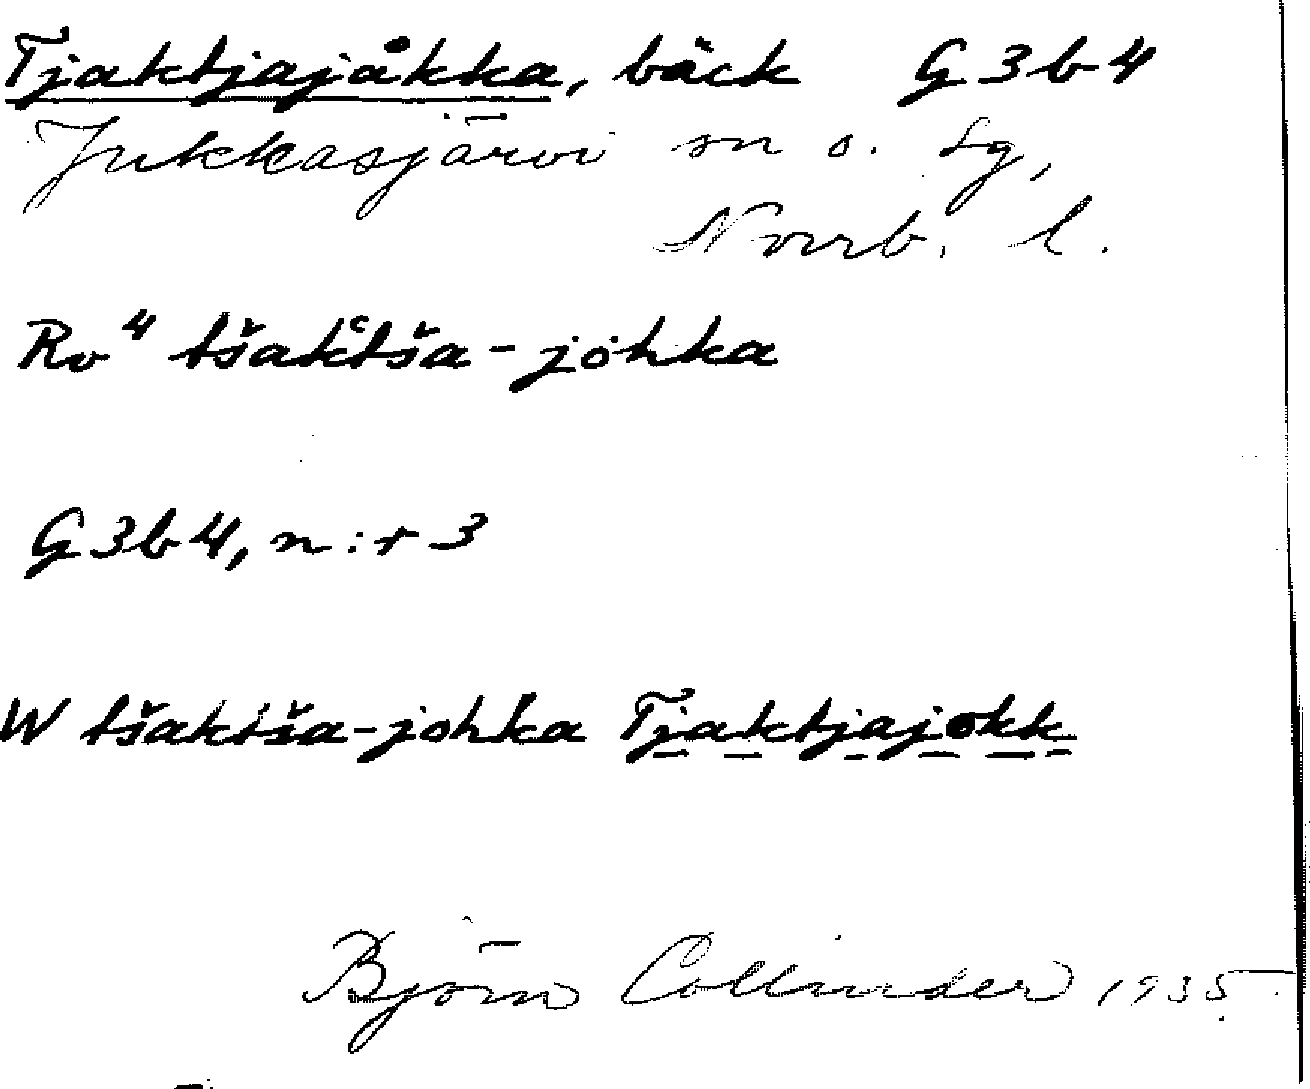 Tjaktjajåkka, bäck G3b4
Jukkasjärvi sn o. tg,
Norrb. l.
Rv⁴ tšak͑tša-jòhka
G3b4, n:r 3
W tšaktša-johka Tjaktjajokk
Björn Collinder 1935